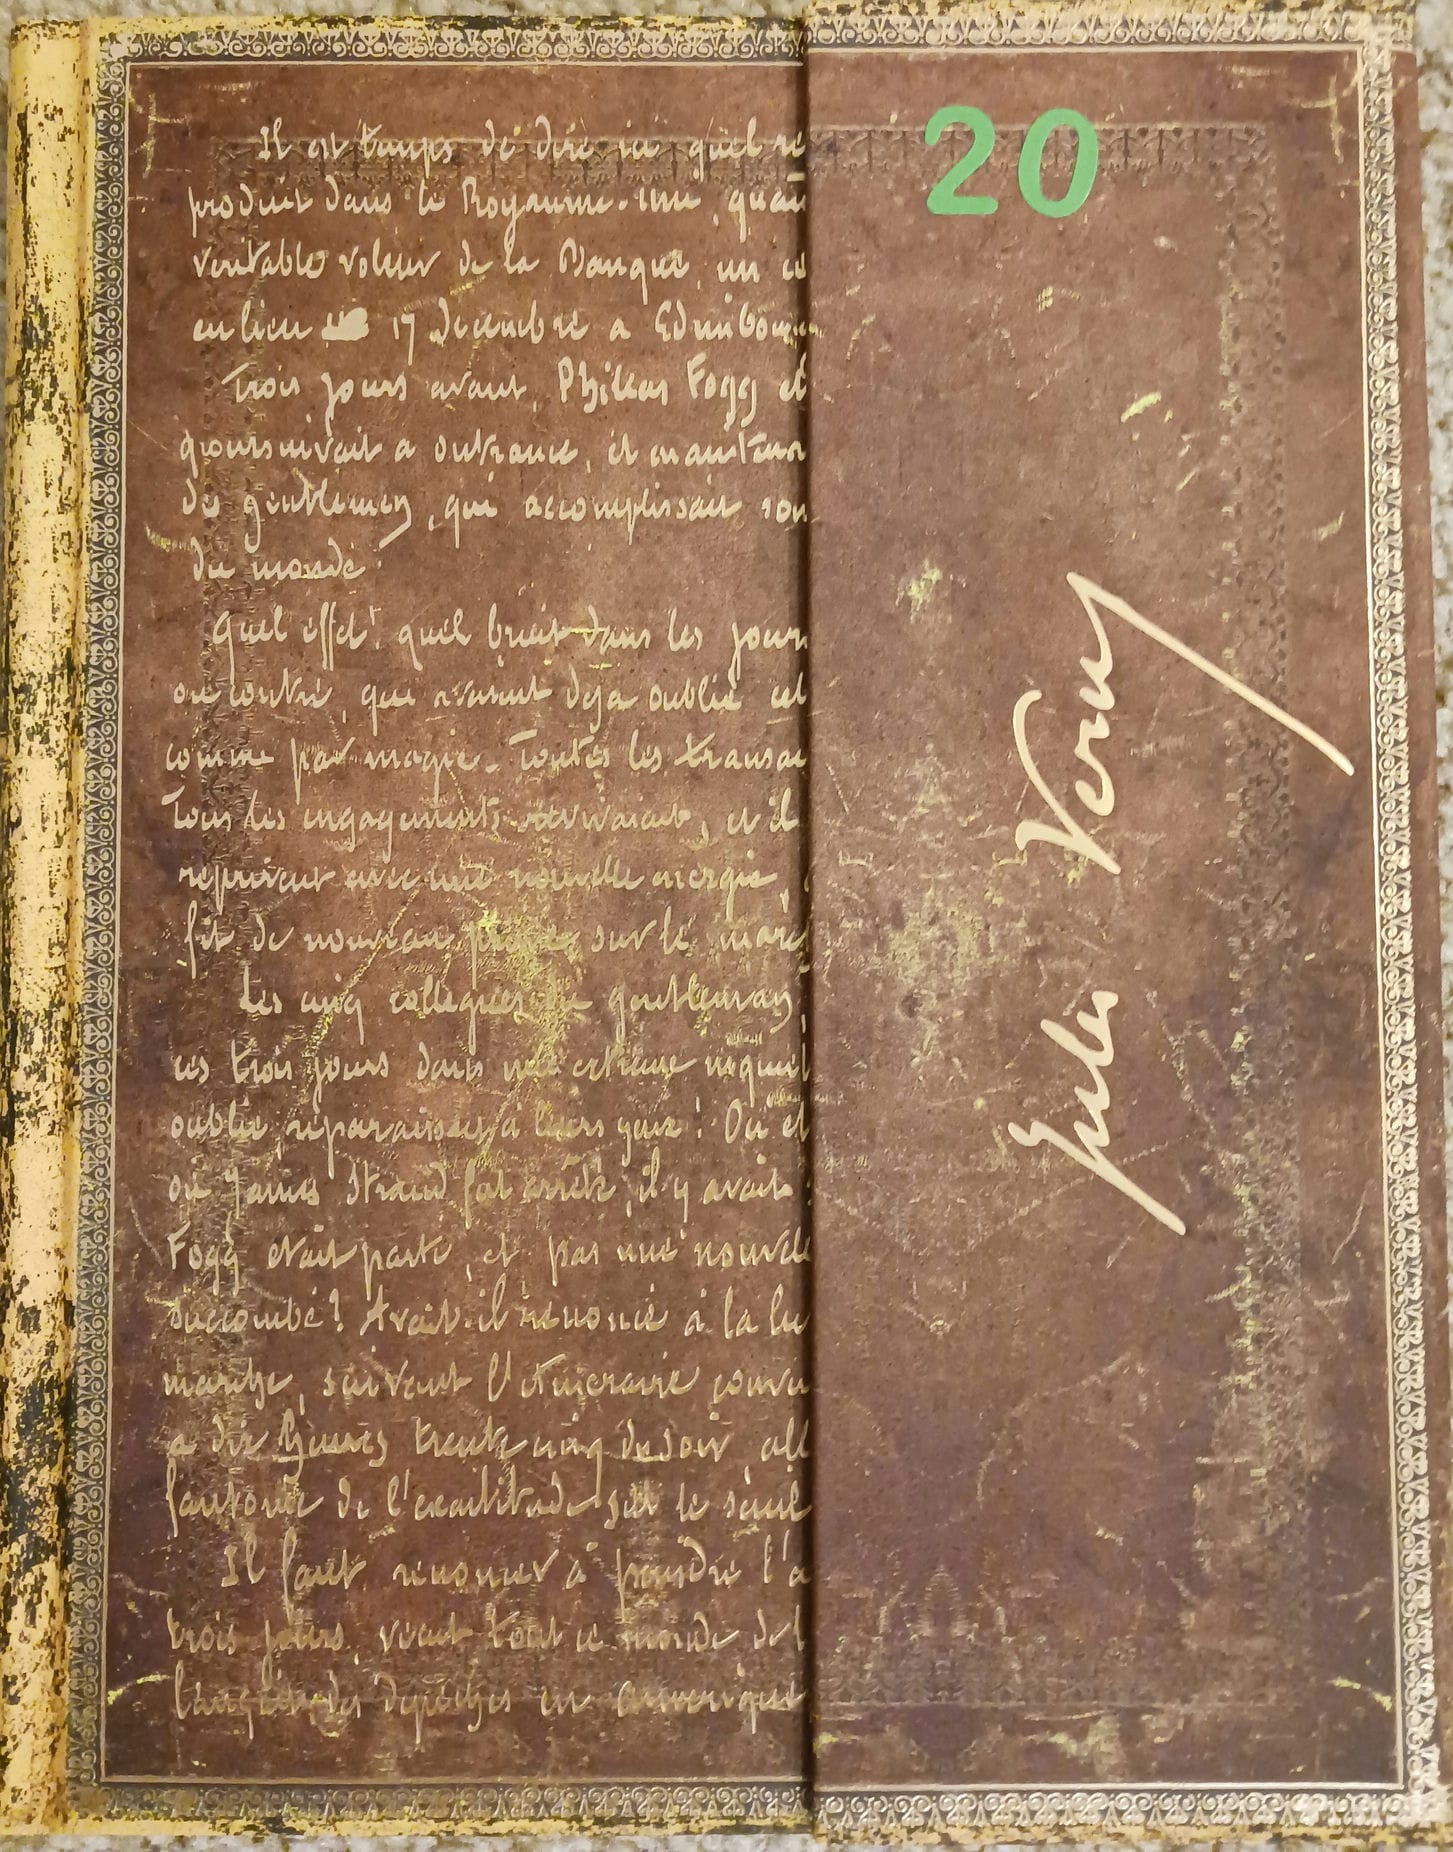 Il est temps de dire ici quel re
produit dans le Royaume-Uni, quan
veritable voleur de la Banque, un ce
eu lieu 17 Decembre a Edimbourg
Trois jours avant, Phileas Fogg et
poursuivait a outrance, et maintenan
de gentleman, qui accomplissait son
du monde.
Quel effet! quel bruit dans les journ
ou contre, qui avaient deja oublié cet
comme par magie. Toutes les transac
Tous les engagements revivaient, et il
reprirent avec une nouvelle energie,
fit de nouveau prime sur le marc
Les cinq collegues de gentleman
ces trois jours dans une certaine inquiet
oublié reparaissait à leurs yeux! Où et
où James Strand fut arrêté, il y avait
Fogg etait parti, et pas une nouvelle
succombé? Avait-il renoncé à la lu
marche, suivant l'itineraire conve
a dix heures trente cinq du soir, all
fantome de l'exactitude, sur le seuil
Il faut renoncer à peindre l'a
trois jours, vecut tout ce monde de l
depêches en Amerique
20
Jules Verne